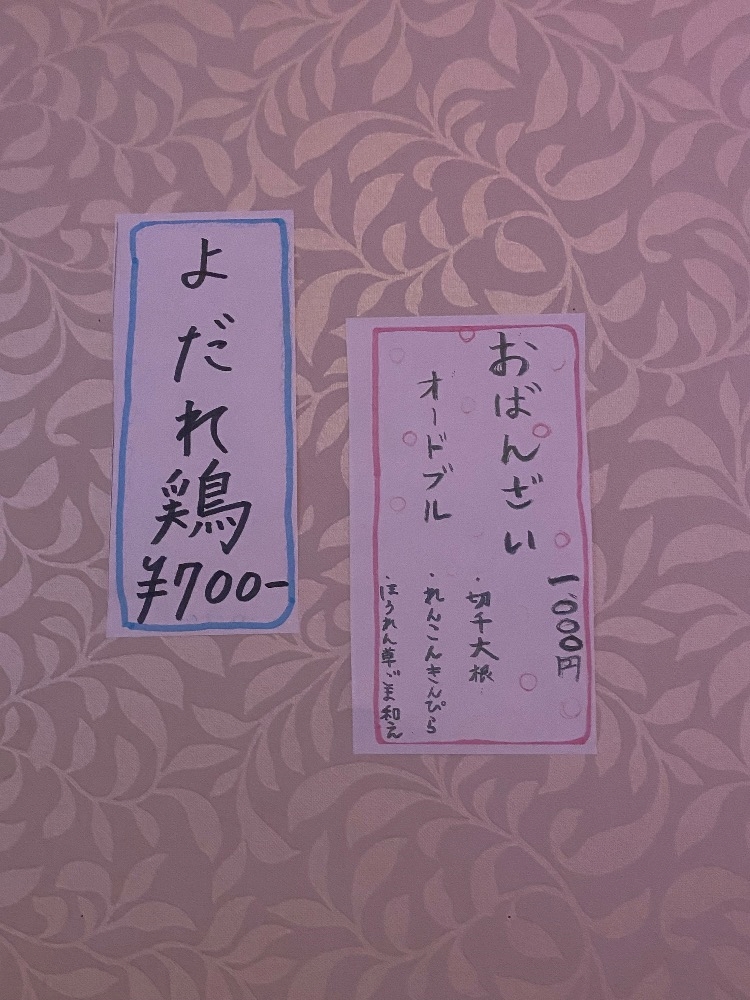 よだれ鶏
¥700-
おばんざい
オードブル
一、000円
・切千大根
・れんこんきんぴら
・ほうれん草ごま和え